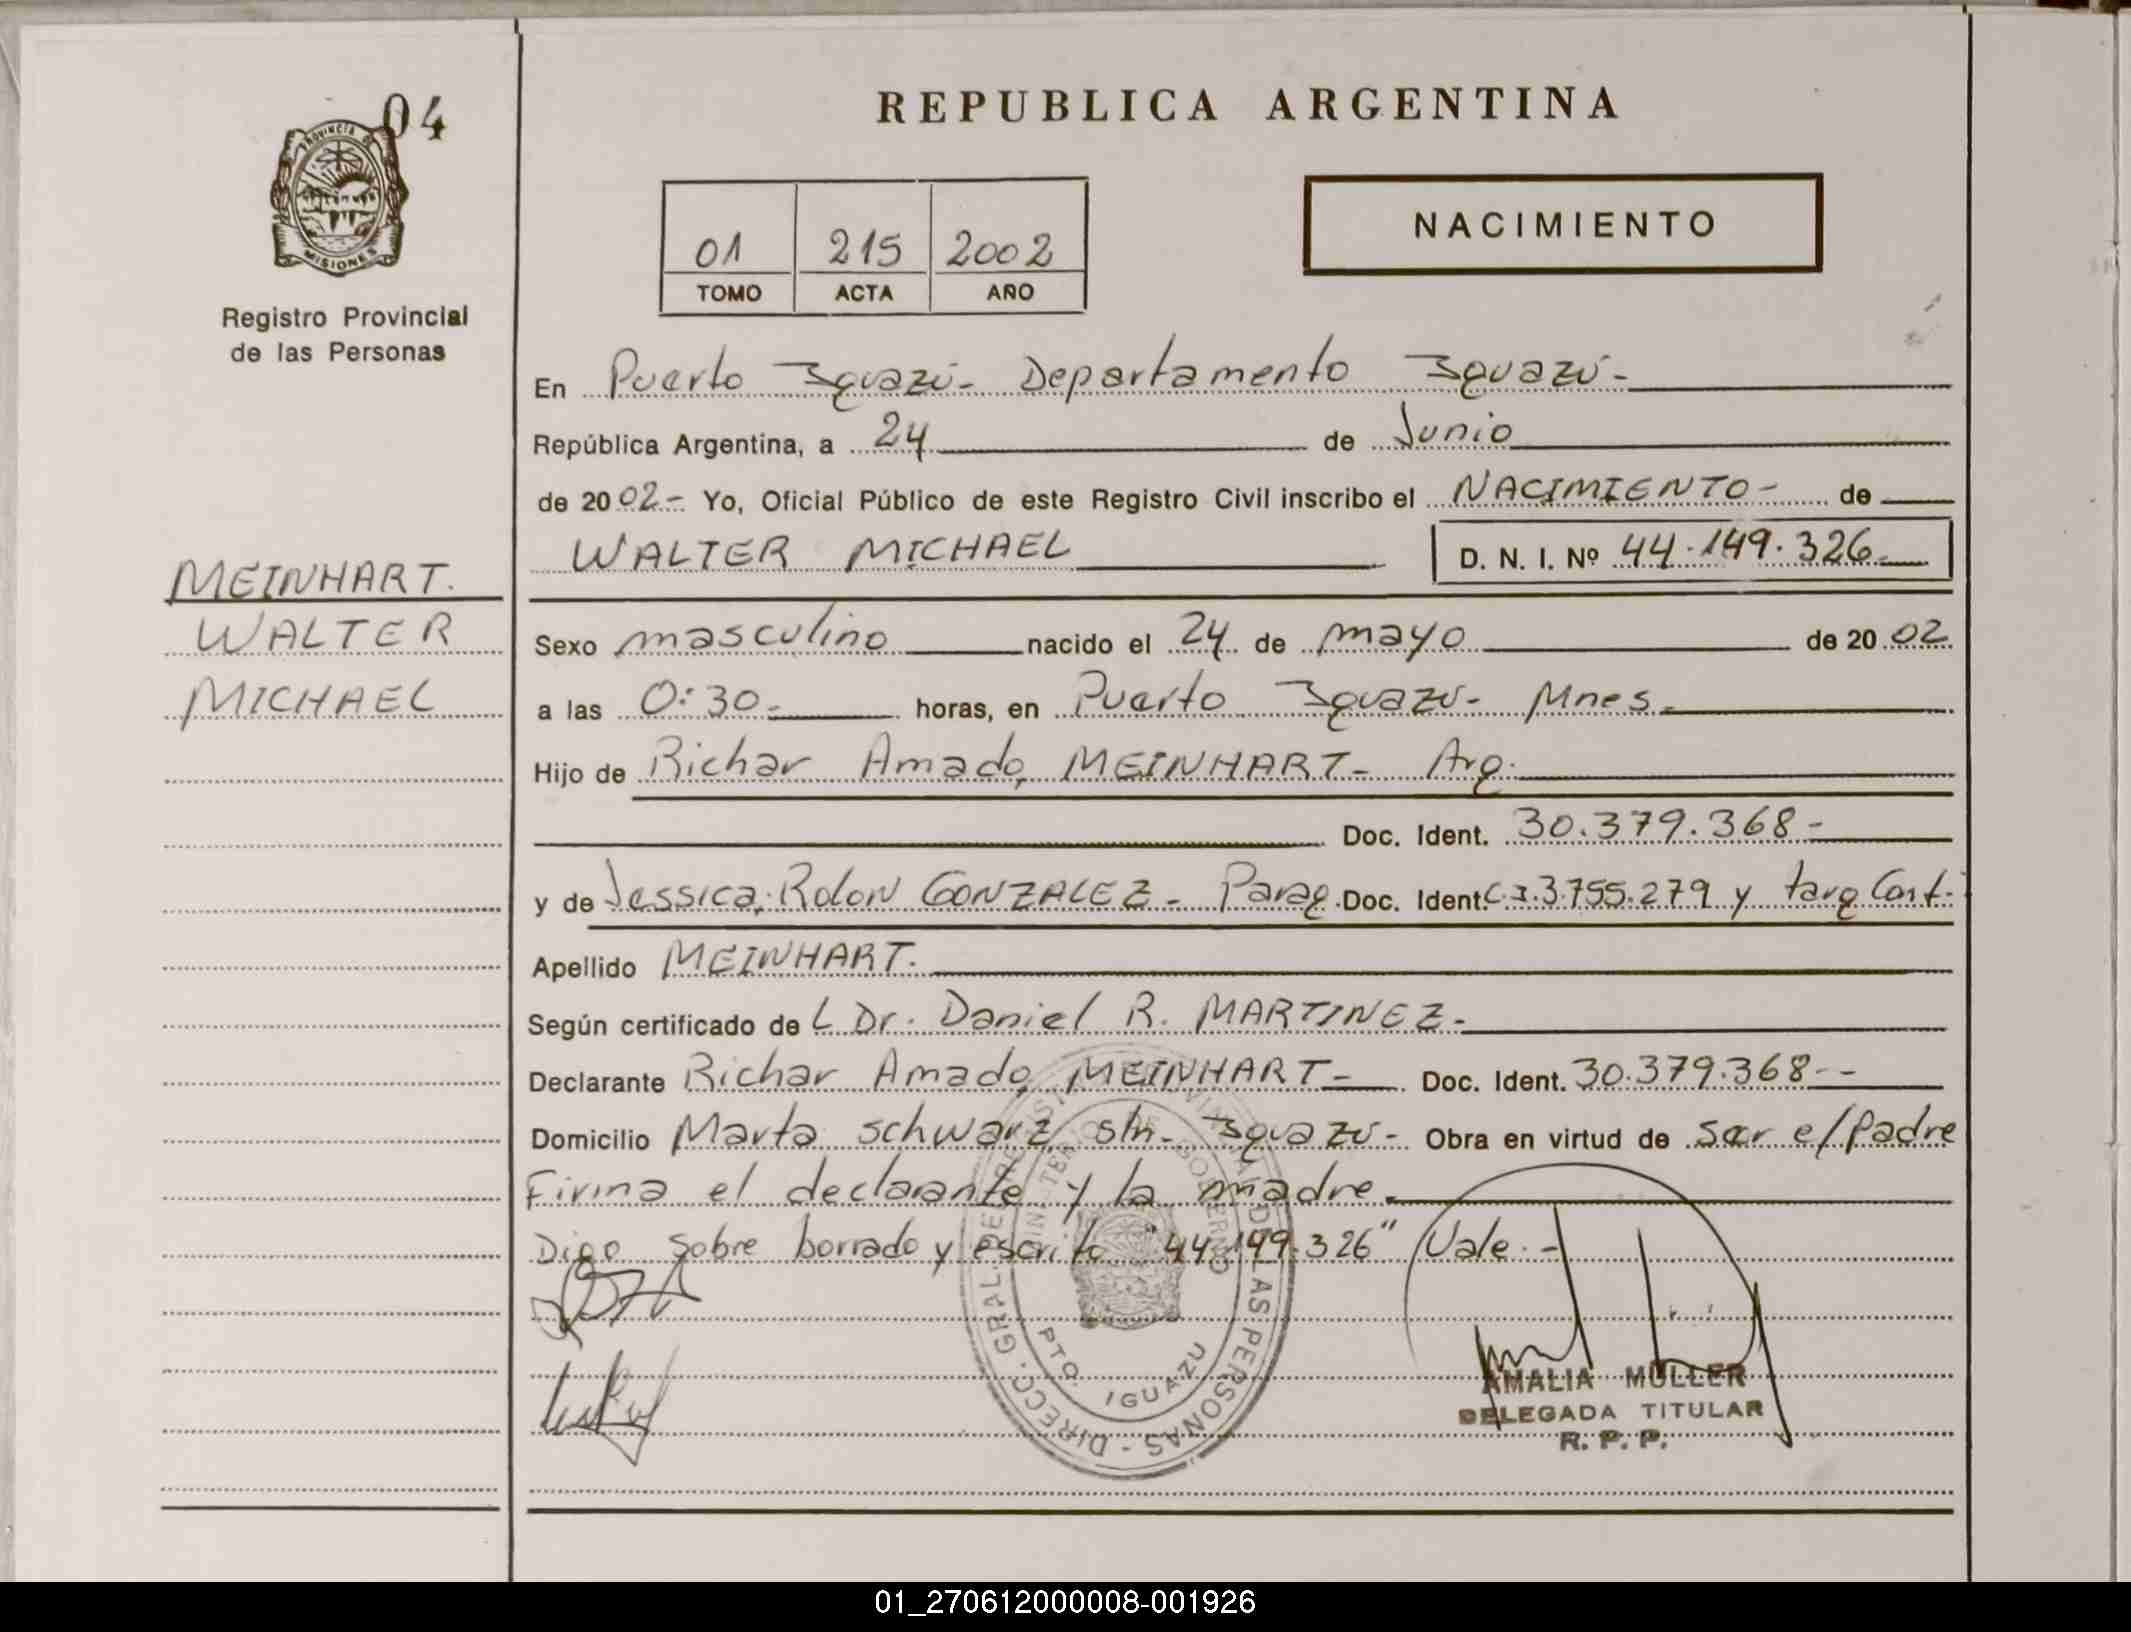 04
PROVINCIA DE
MISIONES
Registro Provincial
de las Personas
MEINHART.
WALTER
MICHAEL
REPUBLICA ARGENTINA
01 215 2002
TOMO ACTA AÑO
NACIMIENTO
En Puerto Iguazú- Departamento Iguazú-
República Argentina, a 24 de Junio
de 2002- Yo, Oficial Público de este Registro Civil inscribo el NACIMIENTO- de
WALTER MICHAEL D. N. I. Nº 44.149.326-
Sexo masculino nacido el 24 de mayo de 2002
a las 0:30- horas, en Puerto Iguazú- Mnes.
Hijo de Richar Amado, MEINHART- Arg.
Doc. Ident. 30.379.368-
y de Jessica, Rolon GONZALEZ- Parag. Doc. Ident. C.I.3.755.279 y targ Cont.
Apellido MEINHART.
Según certificado de L Dr. Daniel R. MARTINEZ-
Declarante Richar Amado, MEINHART- Doc. Ident. 30.379.368--
Domicilio Marta schwarz s/n- Iguazú- Obra en virtud de ser e/Padre
Firma el declarante y la madre.
Digo sobre borrado y escrito "44.149.326" Vale.-
DIRECC. GRAL. DEL REGISTRO PROVINCIAL DE LAS PERSONAS -
MINISTERIO DE GOBIERNO
PTO. IGUAZU
AMALIA MÜLLER
DELEGADA TITULAR
R. P. P.
01_270612000008-001926